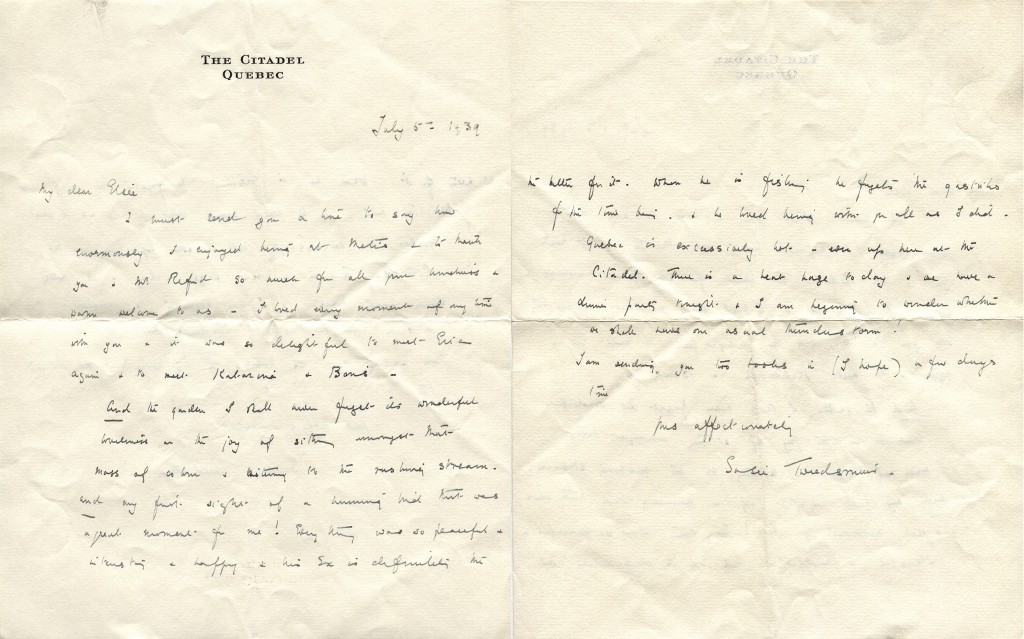 THE CITADEL
QUEBEC
July 5th 1939
My dear Elsie
I must send you a line to say how
enormously I enjoyed being at Metis & to thank
you & Mr Reford so much for all your kindness &
warm welcome to us - I loved every moment of my time
with you & it was so delightful to meet Eric
again & to meet Katarina & Boris -
And the garden I shall never forget its wonderful
loveliness or the joy of sitting amongst that
mass of colour & listening to the rushing stream.
and my first sight of a humming bird that was
a great moment for me! Every thing was so peaceful &
interesting & happy & his Ex is definitely the
better for it. When he is fishing he forgets the gastritis
for the time being. & he loved being with you all as I did.
Quebec is excessively hot - even up here at the
Citadel. There is a heat haze today & we have a
dinner party tonight & I am beginning to wonder whether
we shall have our usual thunder storm!
I am sending you two books in (I hope) a few days
time
yours affectionately
Susie Tweedsmuir.